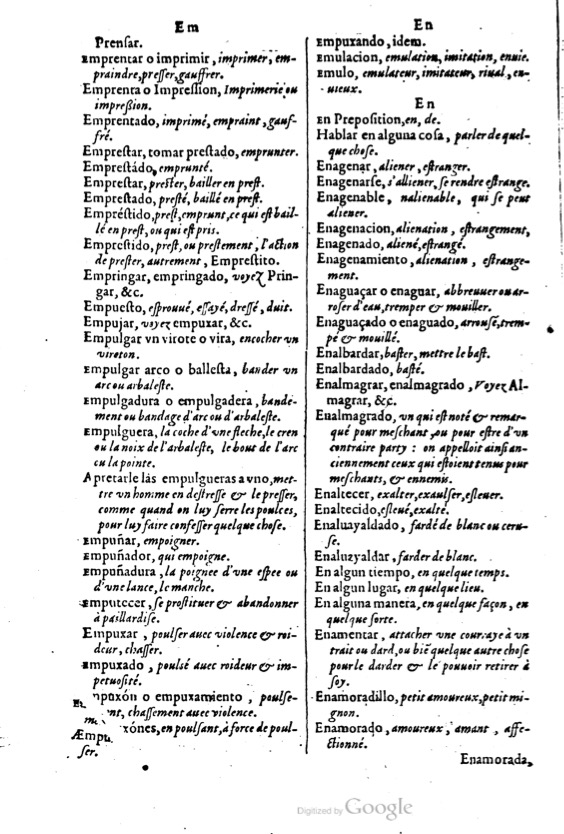 Em
Prensar.
Emprentar o imprimir, imprimer, em-
praindre, presser, gauffrer.
Emprenta o Impression, Imprimerie ou
impreßion.
Emprentado, imprimé, empraint, gauf-
fré.
Emprestar, tomar prestado, emprunter.
Emprestádo, emprunté.
Emprestar, prester, bailler en prest.
Emprestado, presté, baillé en prest.
Empréstido, prest, emprunt, ce qui est bail-
lé en prest, ou qui est pris.
Emprestido, prest, ou prestement, l'action
de prester, autrement, Emprestito.
Empringar, empringado, voyez Prin-
gar, &c.
Empuesto, esprouué, essayé, dressé, duit.
Empujar, voyez empuxar, &c.
Empulgar vn virote o vira, encocher vn
vireton.
Empulgar arco o ballesta, bander vn
arc ou arbaleste.
Empulgadura o empulgadera, bande-
ment ou bandage d'arc ou d'arbaleste.
Empulguera, la coche d'vne fleche, le cren
ou la noix de l'arbaleste, le bout de l'arc
cu la pointe.
Apretarle las empulgueras a vno, met-
tre vn homme en destresse & le presser,
comme quand on luy serre les poulces,
pour luy faire confesser quelque chose.
Empuñar, empoigner.
Empuñador, qui empoigne.
Empuñadura, la poignee d'vne espee ou
d'vne lance, le manche.
Emputecer, se prostituer & abandonner
à paillardise.
Empuxar, poulser auec violence & roi-
deur, chasser.
Empuxado, poulsé auec roideur & im-
petuosité.
puxón o empuxamiento, poulse-
nt, chassement auec violence.
xónes, en poulsant, à force de poul-
ser.
En
Empuxando, idem.
Emulacion, emulation, imitation, enuie.
Emulo, emulateur, imitateur, riual, en-
uieux.
En
En Preposition, en, de.
Hablar en alguna cosa, parler de quel-
que chose.
Enagenar, aliener, estranger.
Enagenarse, s'aliener, se rendre estrange.
Enagenable, nalienable, qui se peut
aliener.
Enagenacion, alienation, estrangement,
Enagenado, aliené, estrangé.
Enagenamiento, alienation, estrange-
ment.
Enaguaçar o enaguar, abbreuuer ou ar-
roser d'eau, tremper & mouiller.
Enaguaçado o enaguado, arrousé, trem-
pé & mouillé.
Enalbardar, baster, mettre le bast.
Enalbardado, basté.
Enalmagrar, enalmagrado, Voyez Al-
magrar, &c.
Enalmagrado, vn qui est noté & remar-
qué pour meschant, ou pour estre d'vn
contraire party : on appelloit ainsi an-
ciennement ceux qui estoient tenus pour
meschants, & ennemis.
Enaltecer, exalter, exaulser, esleuer.
Enaltecido, esleué, exalté.
Enaluayaldado, fardé de blanc ou ceru-
se.
Enaluzyaldar, farder de blanc.
En algun tiempo, en quelque temps.
En algun lugar, en quelque lieu.
En alguna manera, en quelque façon, en
quelque sorte.
Enamentar, attacher vne courraye à vn
trait ou dard, ou bië quelque autre chose
pour le darder & le pouuoir retirer à
soy.
Enamoradillo, petit amoureux, petit mi-
gnon.
Enamorado, amoureux, amant, affe-
ctionné.
Enamorada,
Digitized by Google